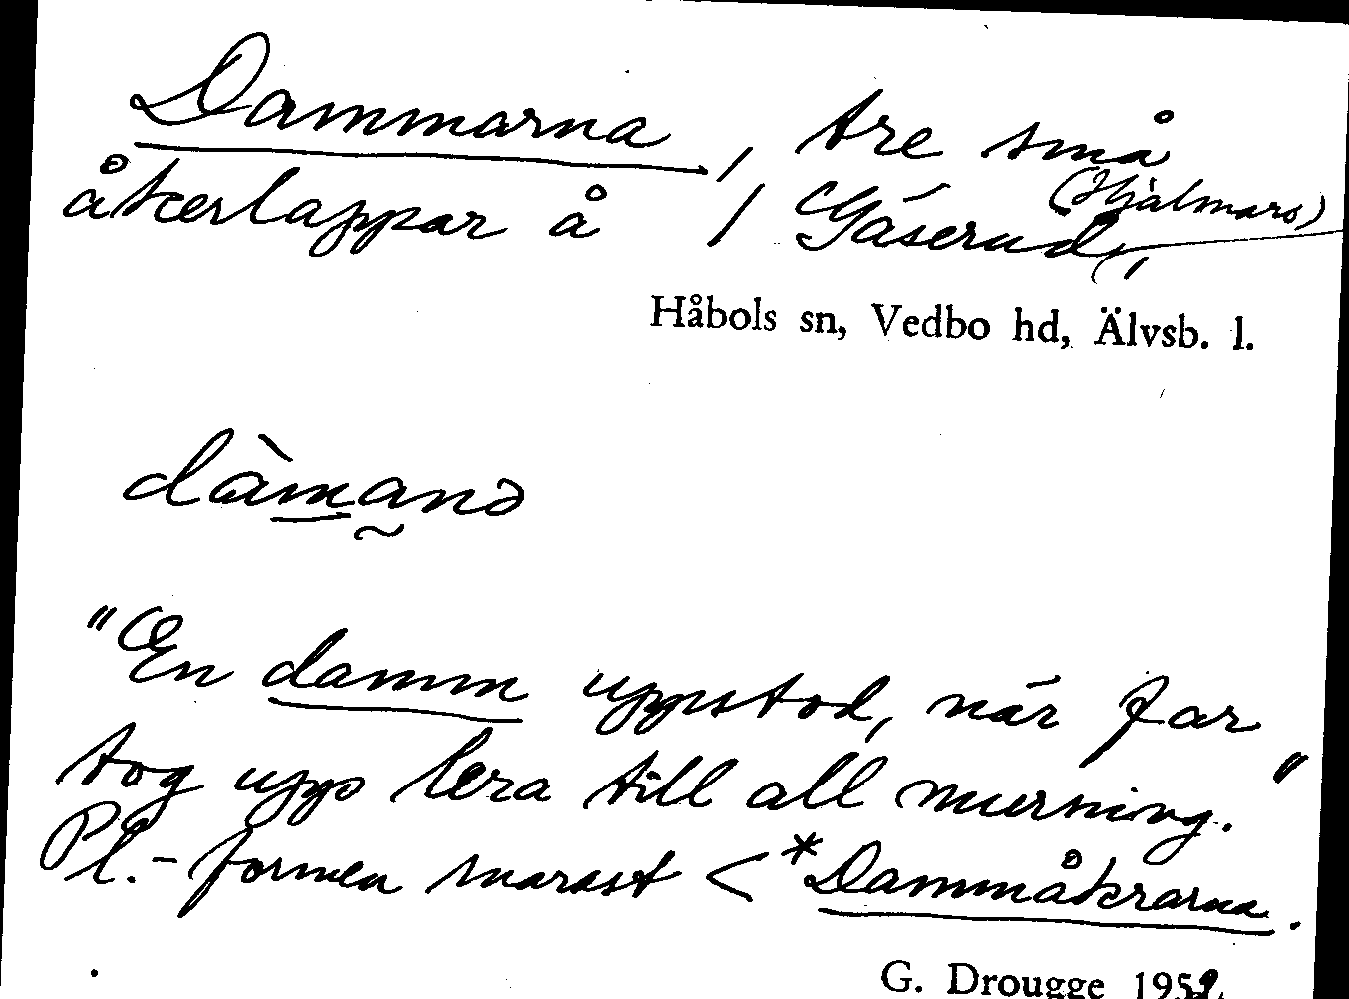 Dammarna, tre små
åkerlappar å / Gåserud, (Hjalmars)
Håbols sn, Vedbo hd, Älvsb. l.
dàmanə
"En damm uppstod, när far
tog upp lera till all murning."
Pl.-formen snarast < *Dammåkrarna.
G. Drougge 1959.